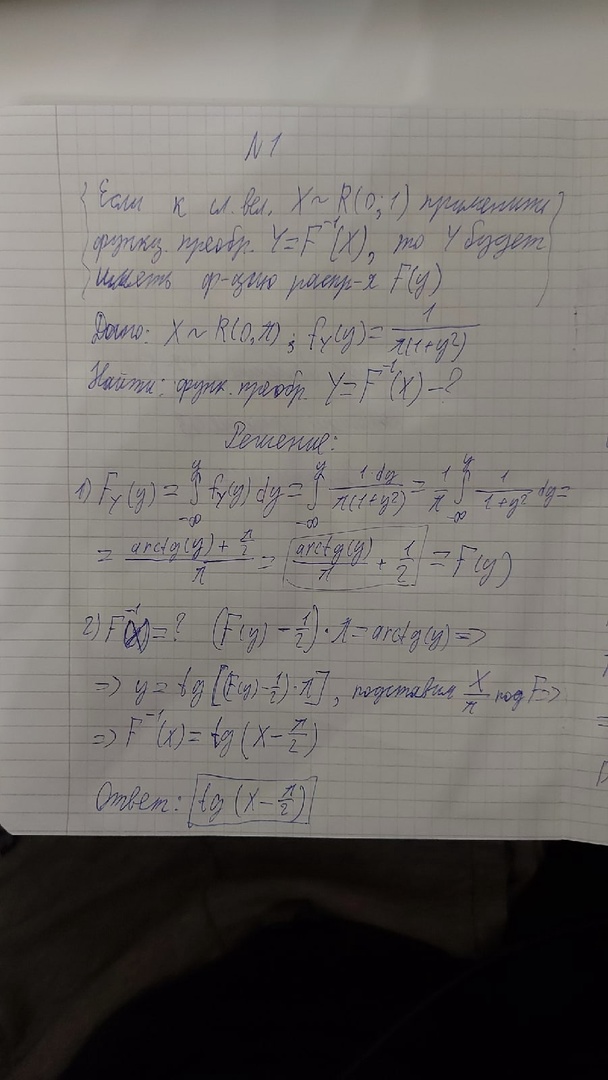 N1
{Если к сл. вел. X ~ R(0;1) применить}
функц. преобр. Y=F⁻¹(X), то Y будет
иметь ф-цию распр-я F(y)
Дано: X ~ R(0,π); f_Y(y) = 1/(π(1+y²))
Найти: функ. преобр. Y=F⁻¹(x) - ?
Решение:
1) F_Y(y) = ∫_{-∞}^{y} f_Y(y) dy = ∫_{-∞}^{y} 1 dy/(π(1+y²)) = 1/π ∫_{-∞}^{y} 1/(1+y²) dy =
= (arctg(y) + π/2)/π = arctg(y)/π + 1/2 = F(y)
2) F⁻¹(x) = ? (F(y) - 1/2) · π = arctg(y) =>
=> y = tg [(F(y) - 1/2) · π], подставим X/π под F =>
=> F⁻¹(x) = tg (x - π/2)
Ответ: tg (x - π/2)